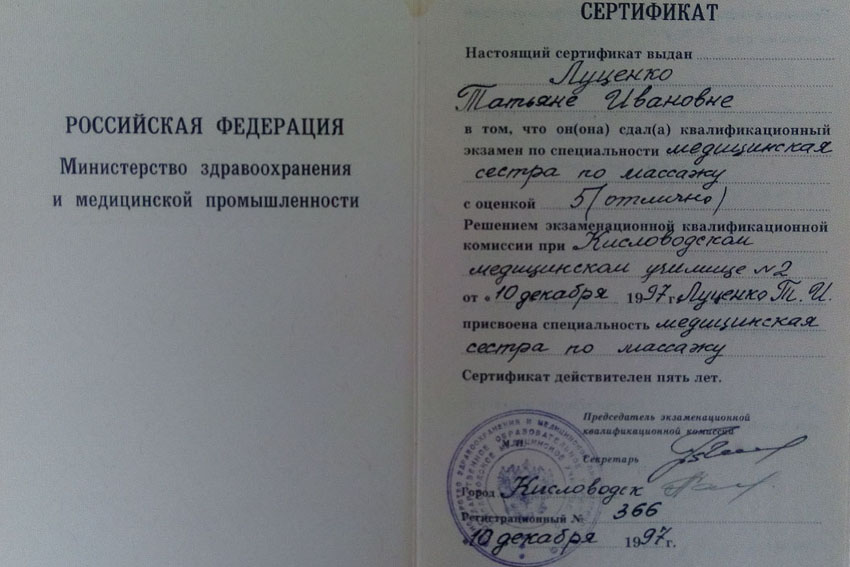 РОССИЙСКАЯ ФЕДЕРАЦИЯ
Министерство здравоохранения
и медицинской промышленности
СЕРТИФИКАТ
Настоящий сертификат выдан
Луценко
Татьяне Ивановне
в том, что он(она) сдал(а) квалификационный
экзамен по специальности медицинская
сестра по массажу
с оценкой 5 (отлично)
Решением экзаменационной квалификационной
комиссии при Кисловодском
медицинском училище №2
от "10 декабря 1997г. Луценко Т. И.
присвоена специальность медицинская
сестра по массажу
Сертификат действителен пять лет.
Председатель экзаменационной
квалификационной комиссии
М.П.
Секретарь
Город Кисловодск
Регистрационный № 366
"10 декабря 1997г.